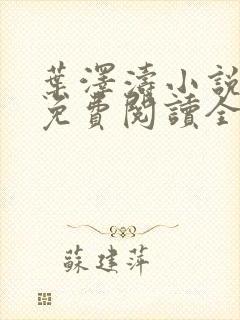 葉澤濤小說
免費閱讀全
蘇建萍